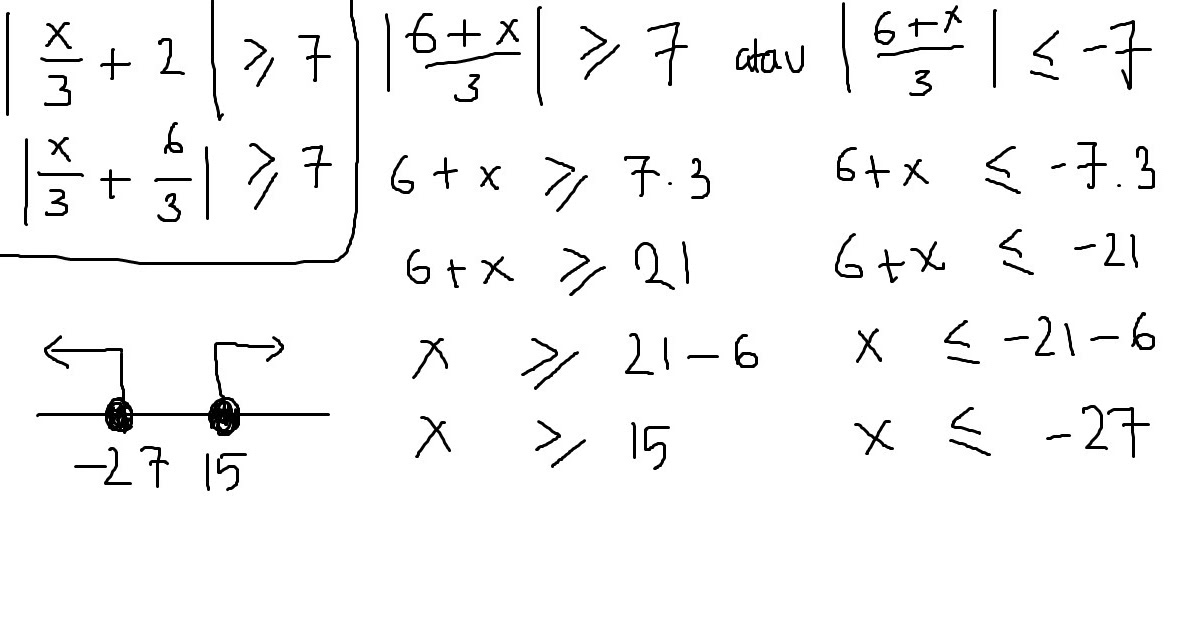 |x/3 + 2| ≥ 7
|x/3 + 6/3| ≥ 7
|6+x/3| ≥ 7 atau |6+x/3| ≤ -7
6+x ≥ 7.3
6+x ≤ -7.3
6+x ≥ 21
6+x ≤ -21
x ≥ 21-6
x ≤ -21-6
x ≥ 15
x ≤ -27
-27 15